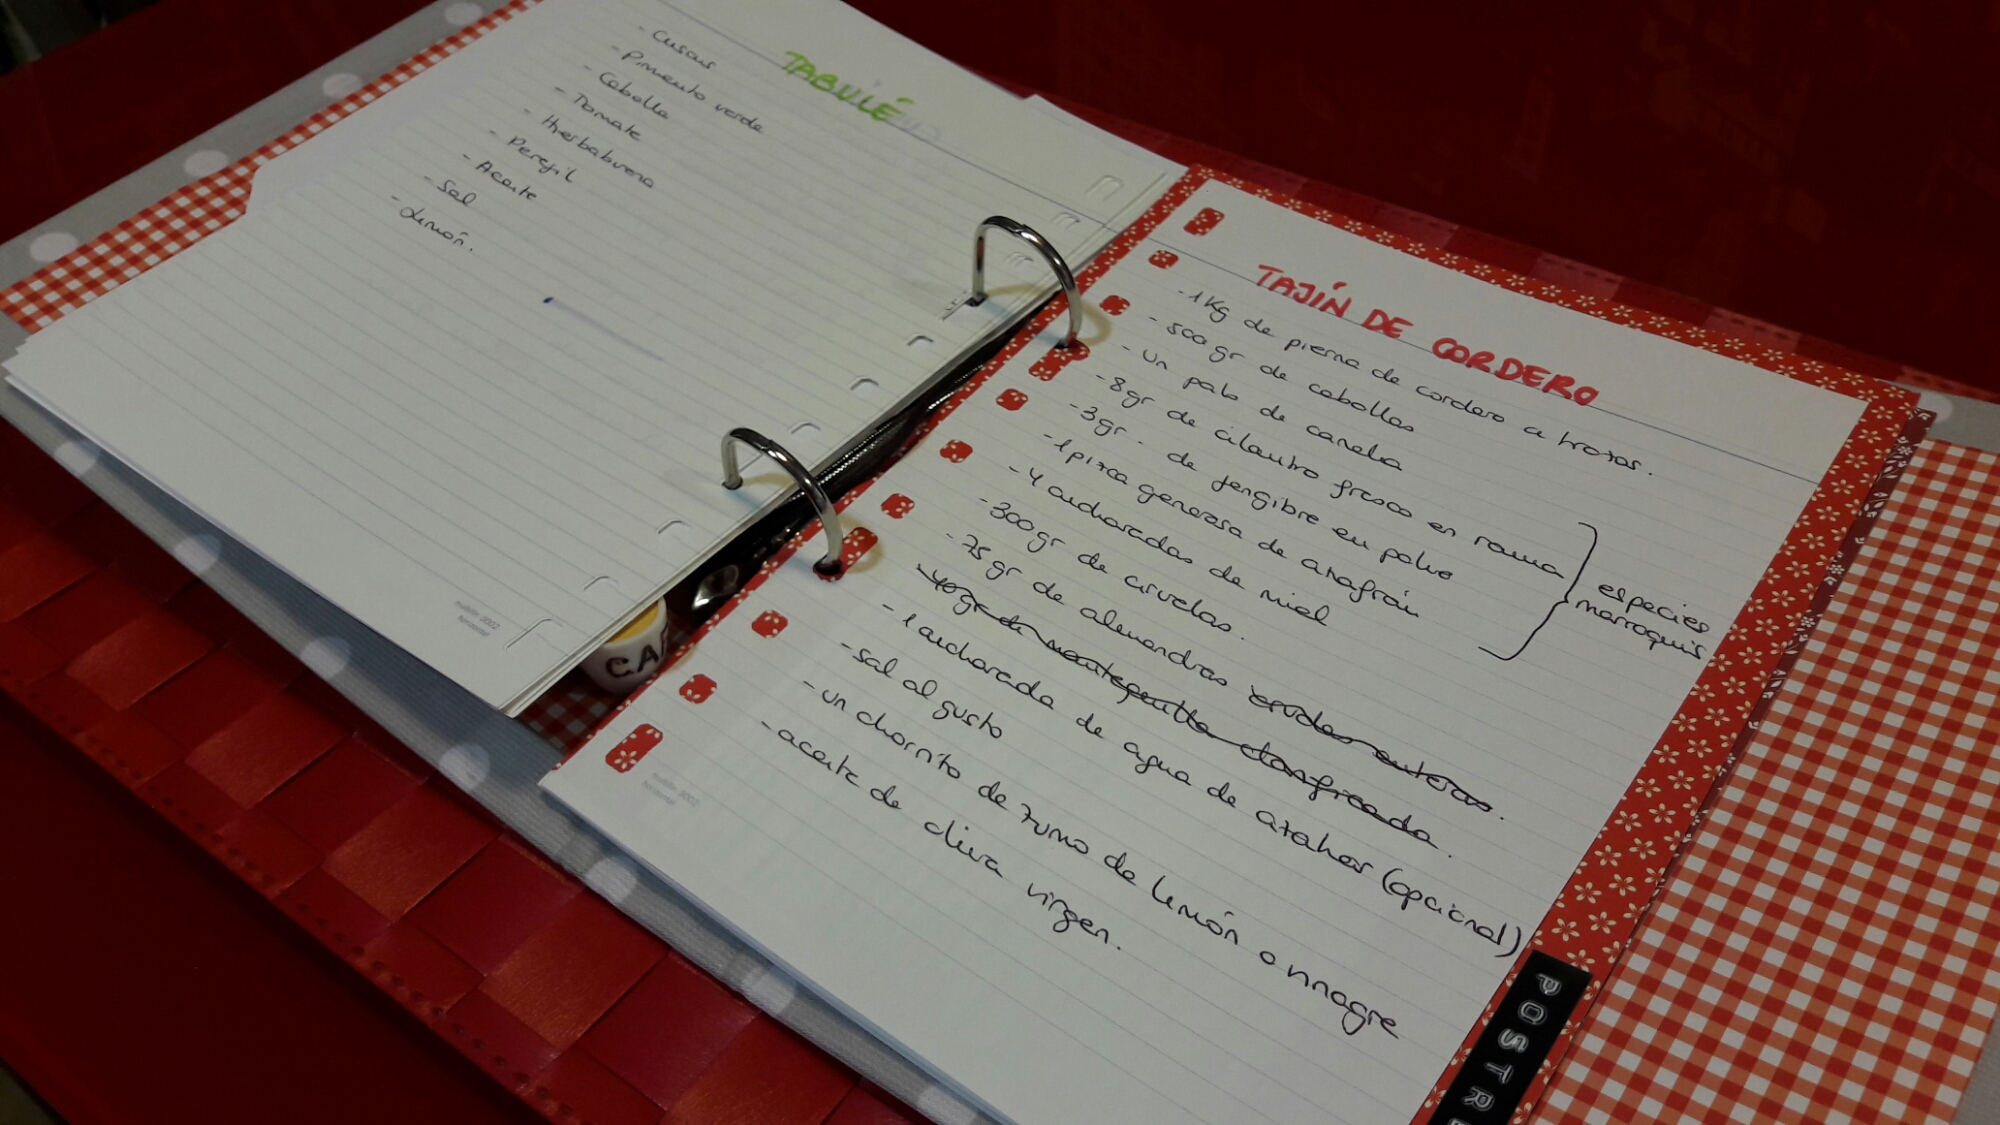 TABULÉ
- Cuscus
- Pimiento verde
- Cebolla
- Tomate
- Hierbabuena
- Perejil
- Aceite
- Sal
- Limón.
TAJÍN DE CORDERO
- 1 Kg de pierna de cordero a trozos.
- 500 gr de cebollas
- Un palo de canela
- 8 gr de cilantro fresco en rama
- 3 gr. de jengibre en polvo
- 1 pizca generosa de azafrán
especies
marroquís
- 4 cucharadas de miel
- 300 gr de ciruelas.
- 75 gr de almendras crudas enteras.
- 40 gr de mantequilla clarificada.
- 1 cucharada de agua de azahar (opcional)
- sal al gusto
- un chorrito de zumo de limón o vinagre
- aceite de oliva virgen.
POSTRE
CA
3002
horizontal
3002
horizontal